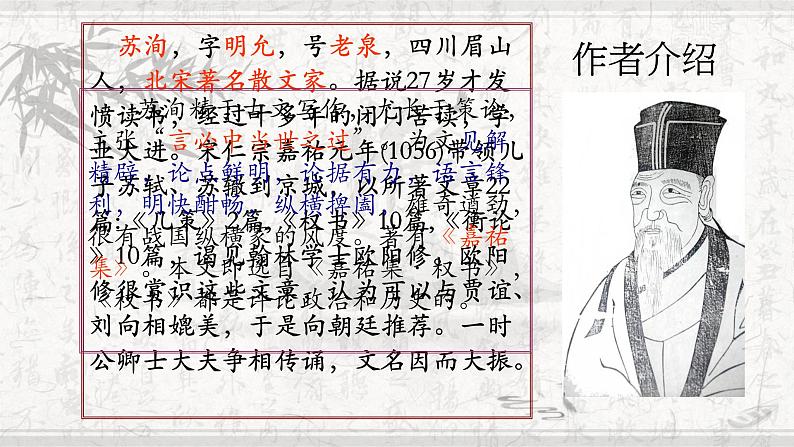 作者介绍
苏洵，字明允，号老泉，四川眉山
人，北宋著名散文家。据说27岁才发
愤读书，经过十多年的闭门苦读，学
业大进。宋仁宗嘉祐元年(1056)带领儿
子苏轼、苏辙到京城，以所著文章22
篇:《几策》2篇，《权书》10篇，《衡论
》10篇，谒见翰林学士欧阳修。欧阳
修很赏识这些文章，认为可以与贾谊、
刘向相媲美，于是向朝廷推荐。一时
公卿士大夫争相传诵，文名因而大振。
苏洵精于古文写作，尤长于策论，
主张“言必中当世之过”。为文见解
精辟，论点鲜明，论据有力，语言锋
利，明快酣畅，纵横捭阖，雄奇遒劲，
很有战国纵横家的风度。著有《嘉祐
集》。本文即选自《嘉祐集·权书》，
《权书》都是评论政治和历史的。